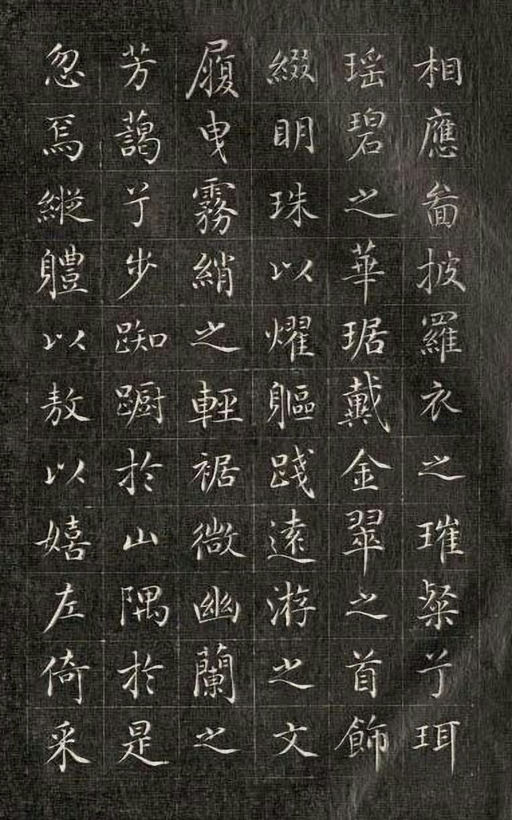 相應啚披羅衣之璀粲兮珥
瑶碧之華琚戴金翠之首飾
綴明珠以燿軀踐遠游之文
履曳霧綃之輕裾微幽蘭之
芳藹兮步踟躕於山隅於是
忽焉縱軆以敖以嬉左倚采